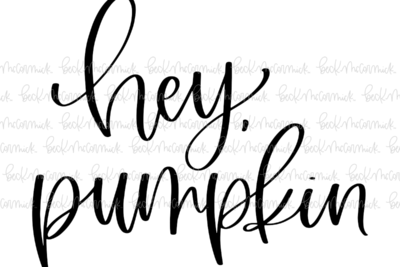 hey,
pumpkin